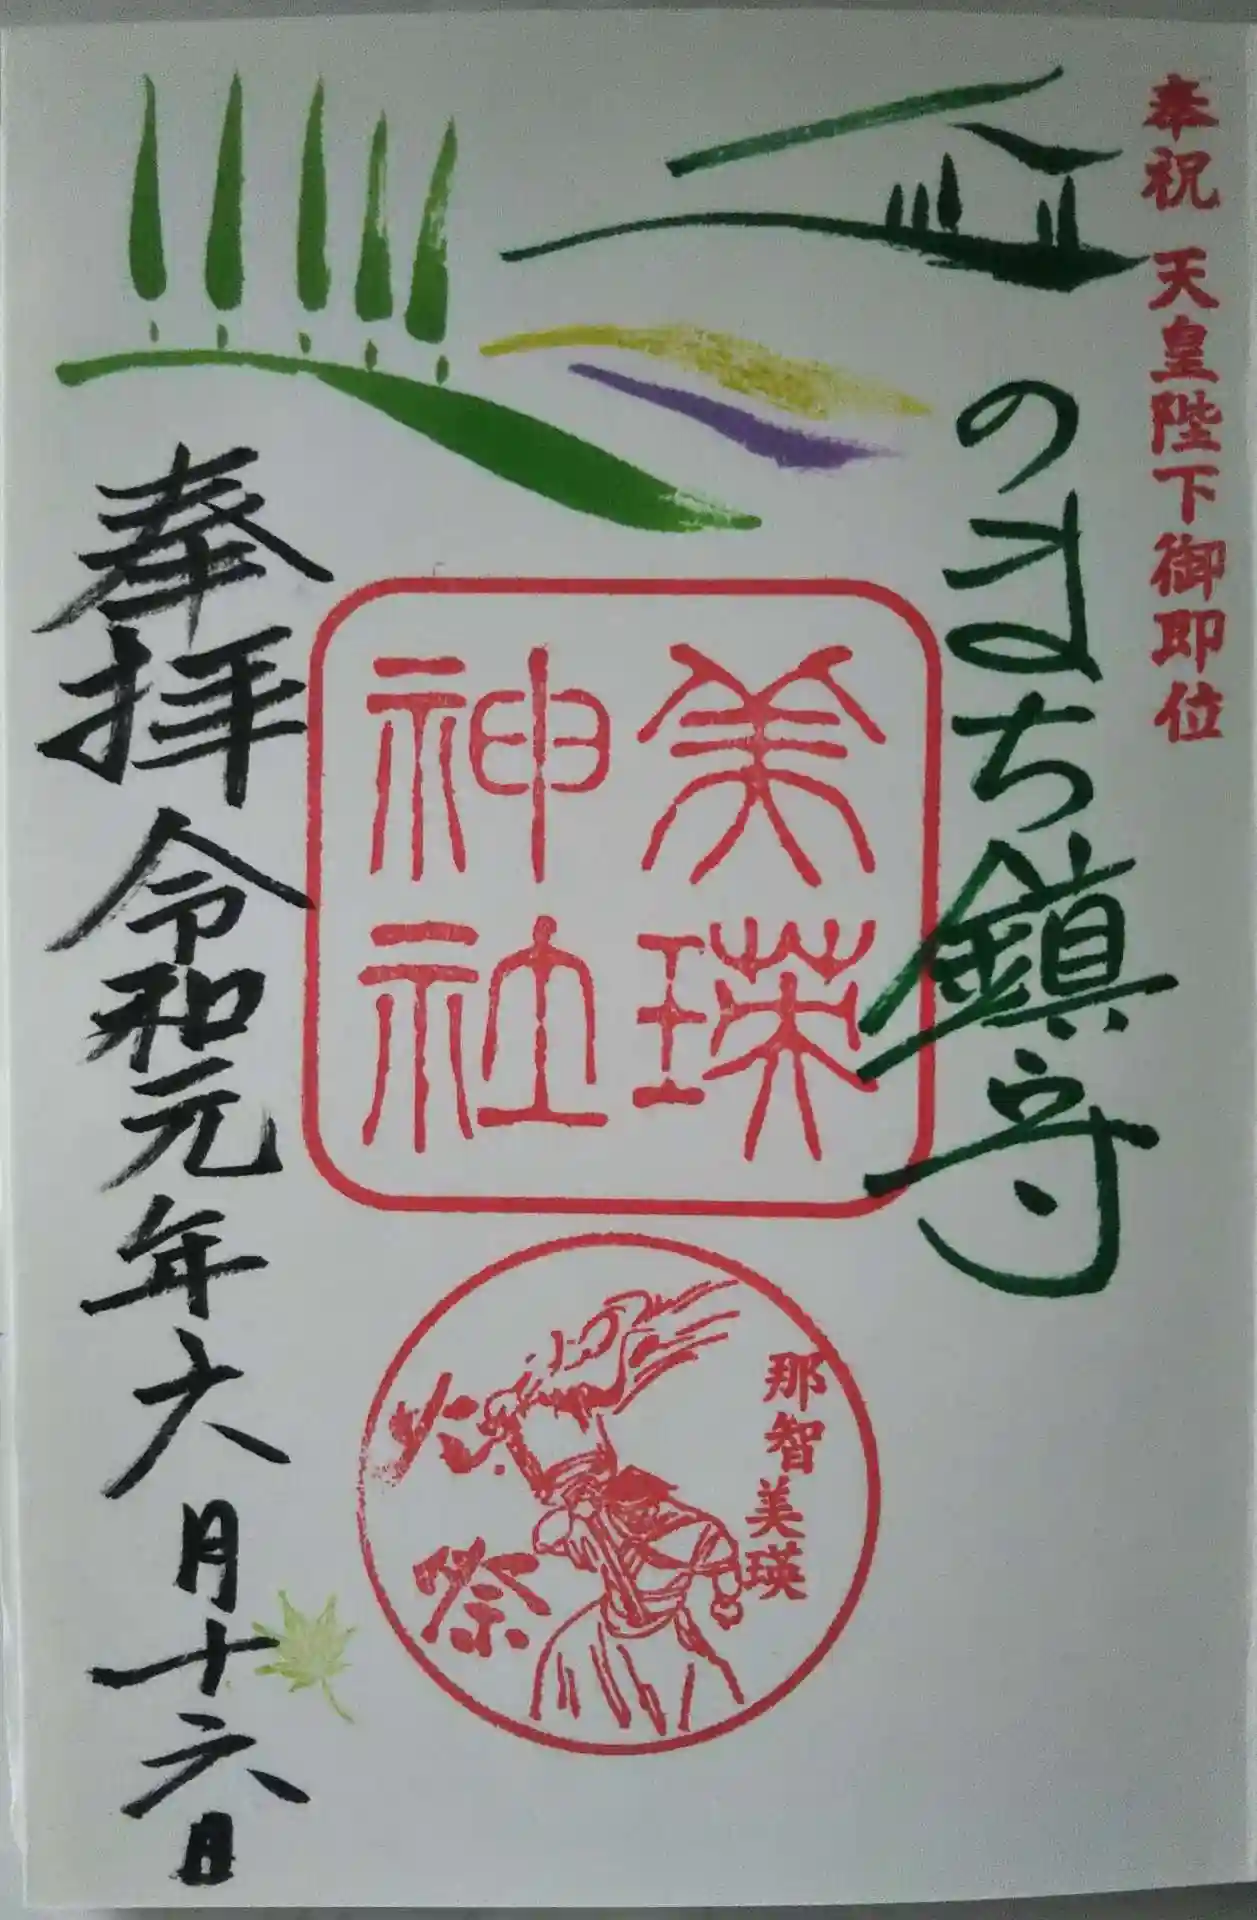 奉祝 天皇陛下御即位
のまち鎮守
美瑛
神社
那智美瑛
火祭
奉拝 令和元年六月十六日